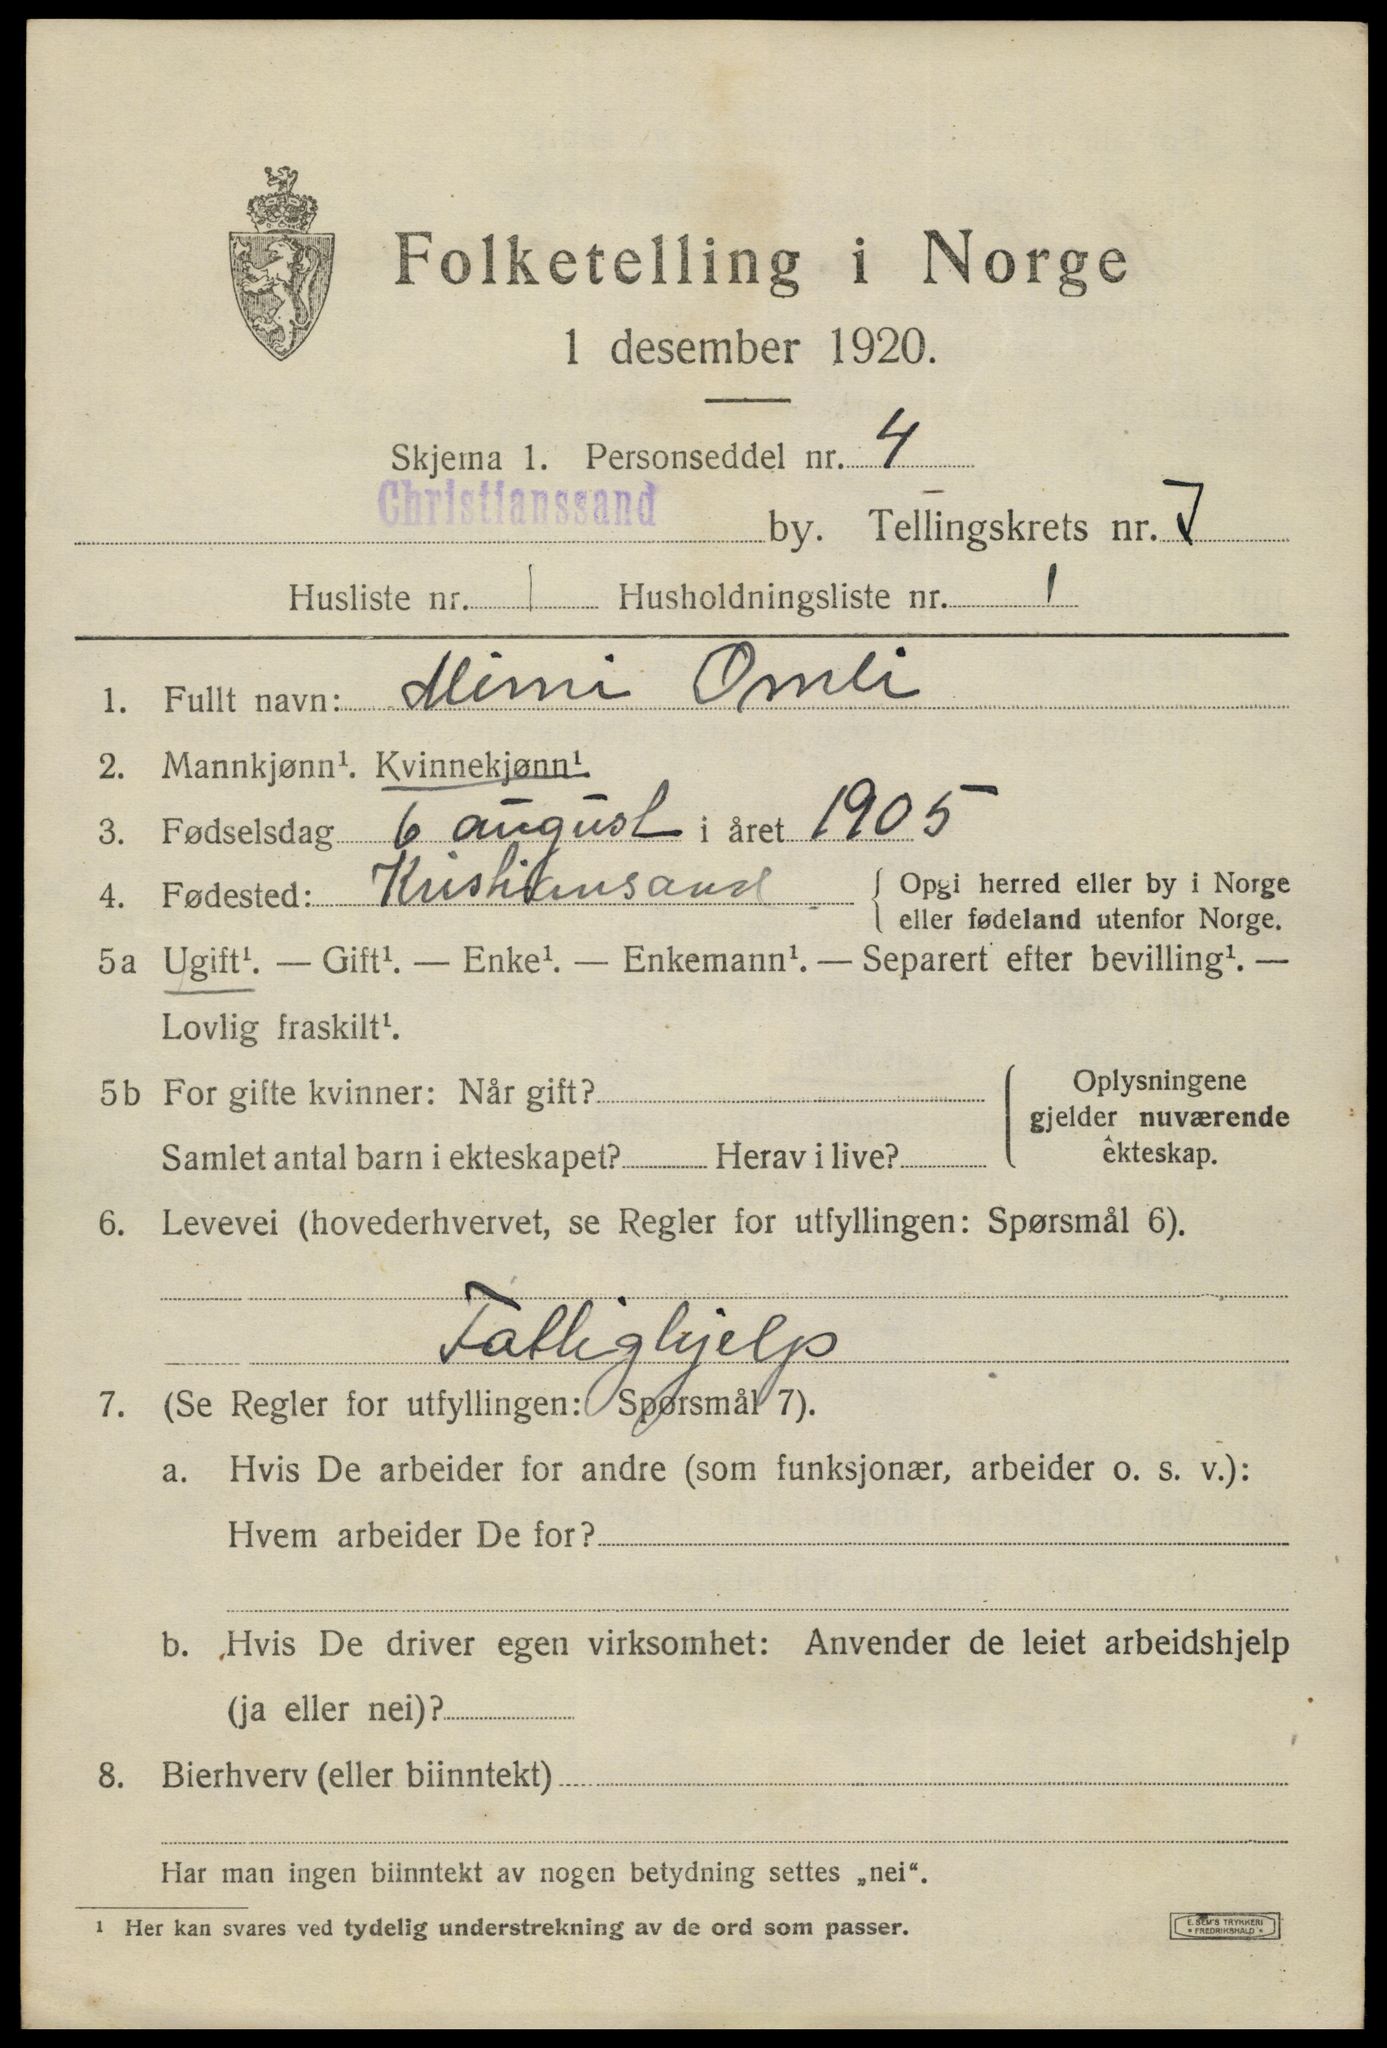 Folketelling i Norge
1 desember 1920.
Skjema 1. Personseddel nr. 4
Christianssand by. Tellingskrets nr. 7
Husliste nr. 1 Husholdningsliste nr. 1
1. Fullt navn: Mimi Omli
2. Mannkjønn¹. Kvinnekjønn¹.
3. Fødselsdag 6 august i året 1905
4. Fødested: Kristiansand { Opgi herred eller by i Norge
eller fødeland utenfor Norge.
5a Ugift¹. — Gift¹. — Enke¹. — Enkemann¹. — Separert efter bevilling¹. —
Lovlig fraskilt¹.
5b For gifte kvinner: Når gift?
Samlet antal barn i ekteskapet? Herav i live?
Oplysningene
gjelder nuværende
ekteskap.
6. Levevei (hovederhvervet, se Regler for utfyllingen: Spørsmål 6).
Fattighjelp
7. (Se Regler for utfyllingen: Spørsmål 7).
a. Hvis De arbeider for andre (som funksjonær, arbeider o. s. v.):
Hvem arbeider De for?
b. Hvis De driver egen virksomhet: Anvender de leiet arbeidshjelp
(ja eller nei)?
8. Bierhverv (eller biinntekt)
Har man ingen biinntekt av nogen betydning settes „nei“.
¹ Her kan svares ved tydelig understrekning av de ord som passer.
E. SEM'S TRYKKERI
* FREDRIKSHALD *